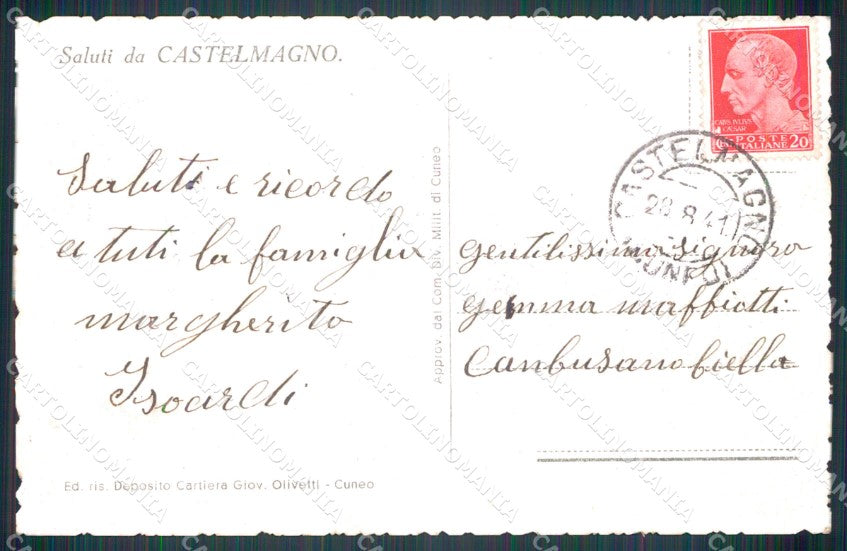 Saluti da CASTELMAGNO.
Saluti e ricordo
a tuti la famiglia
margherito
Isoardi
Ed. ris. Deposito Cartiera Giov. Olivetti - Cuneo
Approv. dal Com. Div. Milit. di Cuneo
CAIVS IVLIVS
CAESAR
POSTE
ITALIANE 20
CASTELMAGNO
28 8 41
gentilissima signora
gemma maffiotti
Canbusano biella
CARTOLINOMANIA